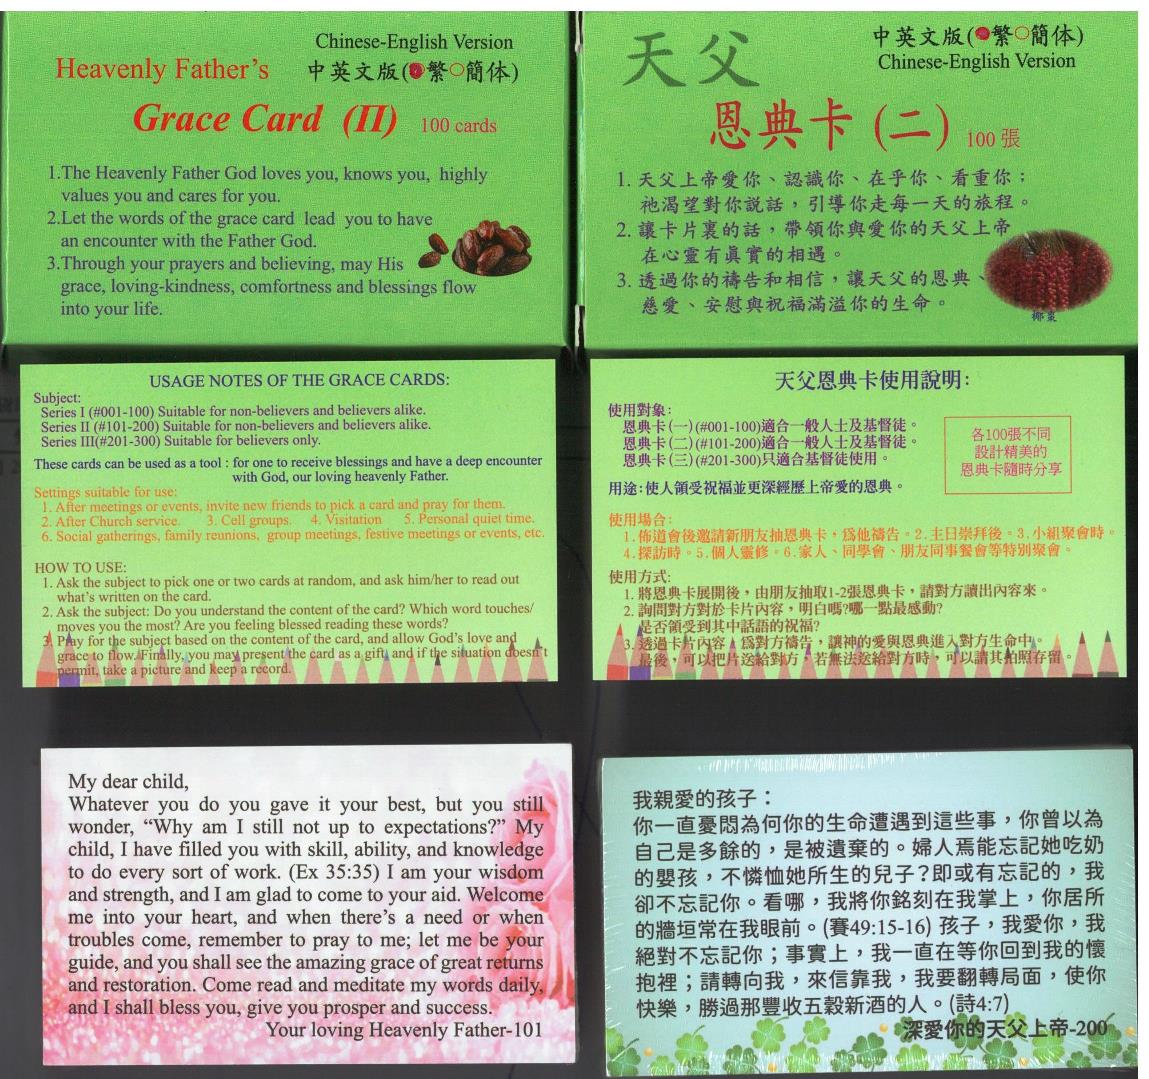 Chinese-English Version
Heavenly Father's 中英文版(繁 簡体)
Grace Card (II) 100 cards
1.The Heavenly Father God loves you, knows you, highly
values you and cares for you.
2.Let the words of the grace card lead you to have
an encounter with the Father God.
3.Through your prayers and believing, may His
grace, loving-kindness, comfortness and blessings flow
into your life.
天父 中英文版(繁 簡体)
Chinese-English Version
恩典卡(二) 100 張
1. 天父上帝愛你、認識你、在乎你、看重你；
祂渴望對你說話，引導你走每一天的旅程。
2. 讓卡片裏的話，帶領你與愛你的天父上帝
在心靈有真實的相遇。
3. 透過你的禱告和相信，讓天父的恩典、
慈愛、安慰與祝福滿溢你的生命。
椰棗
USAGE NOTES OF THE GRACE CARDS:
Subject:
Series I (#001-100) Suitable for non-believers and believers alike.
Series II (#101-200) Suitable for non-believers and believers alike.
Series III(#201-300) Suitable for believers only.
These cards can be used as a tool : for one to receive blessings and have a deep encounter
with God, our loving heavenly Father.
Settings suitable for use:
1. After meetings or events, invite new friends to pick a card and pray for them.
2. After Church service. 3. Cell groups. 4. Visitation 5. Personal quiet time.
6. Social gatherings, family reunions, group meetings, festive meetings or events, etc.
HOW TO USE:
1. Ask the subject to pick one or two cards at random, and ask him/her to read out
what's written on the card.
2. Ask the subject: Do you understand the content of the card? Which word touches/
moves you the most? Are you feeling blessed reading these words?
3. Pray for the subject based on the content of the card, and allow God's love and
grace to flow. Finally, you may present the card as a gift, and if the situation doesn't
permit, take a picture and keep a record.
天父恩典卡使用說明：
使用對象：
恩典卡(一)(#001-100)適合一般人士及基督徒。
恩典卡(二)(#101-200)適合一般人士及基督徒。
恩典卡(三)(#201-300)只適合基督徒使用。
各100張不同
設計精美的
恩典卡隨時分享
用途：使人領受祝福並更深經歷上帝愛的恩典。
使用場合：
1.佈道會後邀請新朋友抽恩典卡，為他禱告。2.主日崇拜後。3.小組聚會時。
4.探訪時。5.個人靈修。6.家人、同學會、朋友同事餐會等特別聚會。
使用方式：
1. 將恩典卡展開後，由朋友抽取1-2張恩典卡，請對方讀出內容來。
2. 詢問對方對於卡片內容，明白嗎?哪一點最感動?
是否領受到其中話語的祝福?
3. 透過卡片內容，為對方禱告，讓神的愛與恩典進入對方生命中。
最後，可以把片送給對方，若無法送給對方時，可以請其拍照存留。
My dear child,
Whatever you do you gave it your best, but you still
wonder, “Why am I still not up to expectations?” My
child, I have filled you with skill, ability, and knowledge
to do every sort of work. (Ex 35:35) I am your wisdom
and strength, and I am glad to come to your aid. Welcome
me into your heart, and when there's a need or when
troubles come, remember to pray to me; let me be your
guide, and you shall see the amazing grace of great returns
and restoration. Come read and meditate my words daily,
and I shall bless you, give you prosper and success.
Your loving Heavenly Father-101
我親愛的孩子：
你一直憂悶為何你的生命遭遇到這些事，你曾以為
自己是多餘的，是被遺棄的。婦人焉能忘記她吃奶
的嬰孩，不憐恤她所生的兒子?即或有忘記的，我
卻不忘記你。看哪，我將你銘刻在我掌上，你居所
的牆垣常在我眼前。(賽49:15-16) 孩子，我愛你，我
絕對不忘記你；事實上，我一直在等你回到我的懷
抱裡；請轉向我，來信靠我，我要翻轉局面，使你
快樂，勝過那豐收五穀新酒的人。(詩4:7)
深愛你的天父上帝-200